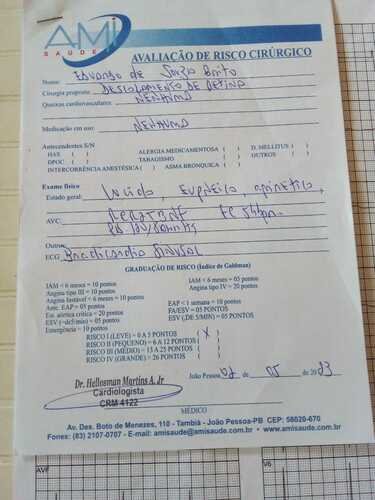 AMI
SAÚDE
AVALIAÇÃO DE RISCO CIRÚRGICO
Nome: Eduardo de Souza Brito
Cirurgia proposta: DESCOLAMENTO DE RETINA
Queixas cardiovasculares: NENHUMA
Medicação em uso: NENHUMA
Antecedentes S/N
HAS ( ) ALERGIA MEDICAMENTOSA ( ) D. MELLITUS ( )
DPOC ( ) TABAGISMO ( ) OUTROS ( )
INTERCORRÊNCIA ANESTÉSICA ( ) ASMA BRONQUICA ( )
Exame físico
Estado geral: Lúcido, Eupneico,
AVC:
Outros:
ECG Bradicardia Sinusal
GRADUAÇÃO DE RISCO (Índice de Goldman)
IAM < 6 meses = 10 pontos IAM < 6 meses = 05 pontos
Angina tipo III = 10 pontos Angina tipo IV = 20 pontos
Angina Instável < 6 meses = 10 pontos
Ant. EAP = 05 pontos EAP < 1 semana = 10 pontos
Est. aórtica crítica = 20 pontos FA/ESV = 05 pontos
ESV (<dé/min) = 05 pontos ESV (.DE 5/MIN) = 05 PONTOS
Emergência = 10 pontos
RISCO I (LEVE) = 0 A 5 PONTOS ( X )
RISCO II (PEQUENO) = 6 A 12 PONTOS ( )
RISCO III (MÉDIO) = 13 A 25 PONTOS ( )
RISCO IV (GRANDE) = 26 PONTOS ( )
João Pessoa, de 05 de 2023
Dr. Hellosman Martins A. Jr
Cardiologista
CRM 4122
MÉDICO
Av. Des. Boto de Menezes, 110 - Tambiá - João Pessoa-PB CEP: 58020-670
Fones: (83) 2107-0707 - E-mail: amisaude@amisaude.com.br • www.amisaude.com.br
AVF
V6